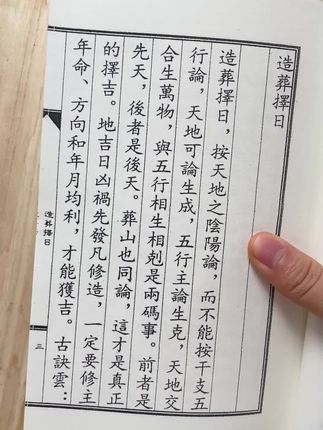 造葬擇日
造葬擇日，按天地之陰陽論，而不能按干支五
行論，天地可論生成，五行主論生克，天地交
合生萬物，與五行相生相剋是兩碼事。前者是
先天，後者是後天。葬山也同論，這才是真正
的擇吉。地吉日凶禍先發凡修造，一定要修主
年命、方向和年月均利，才能獲吉。古訣雲：
造葬擇日
三